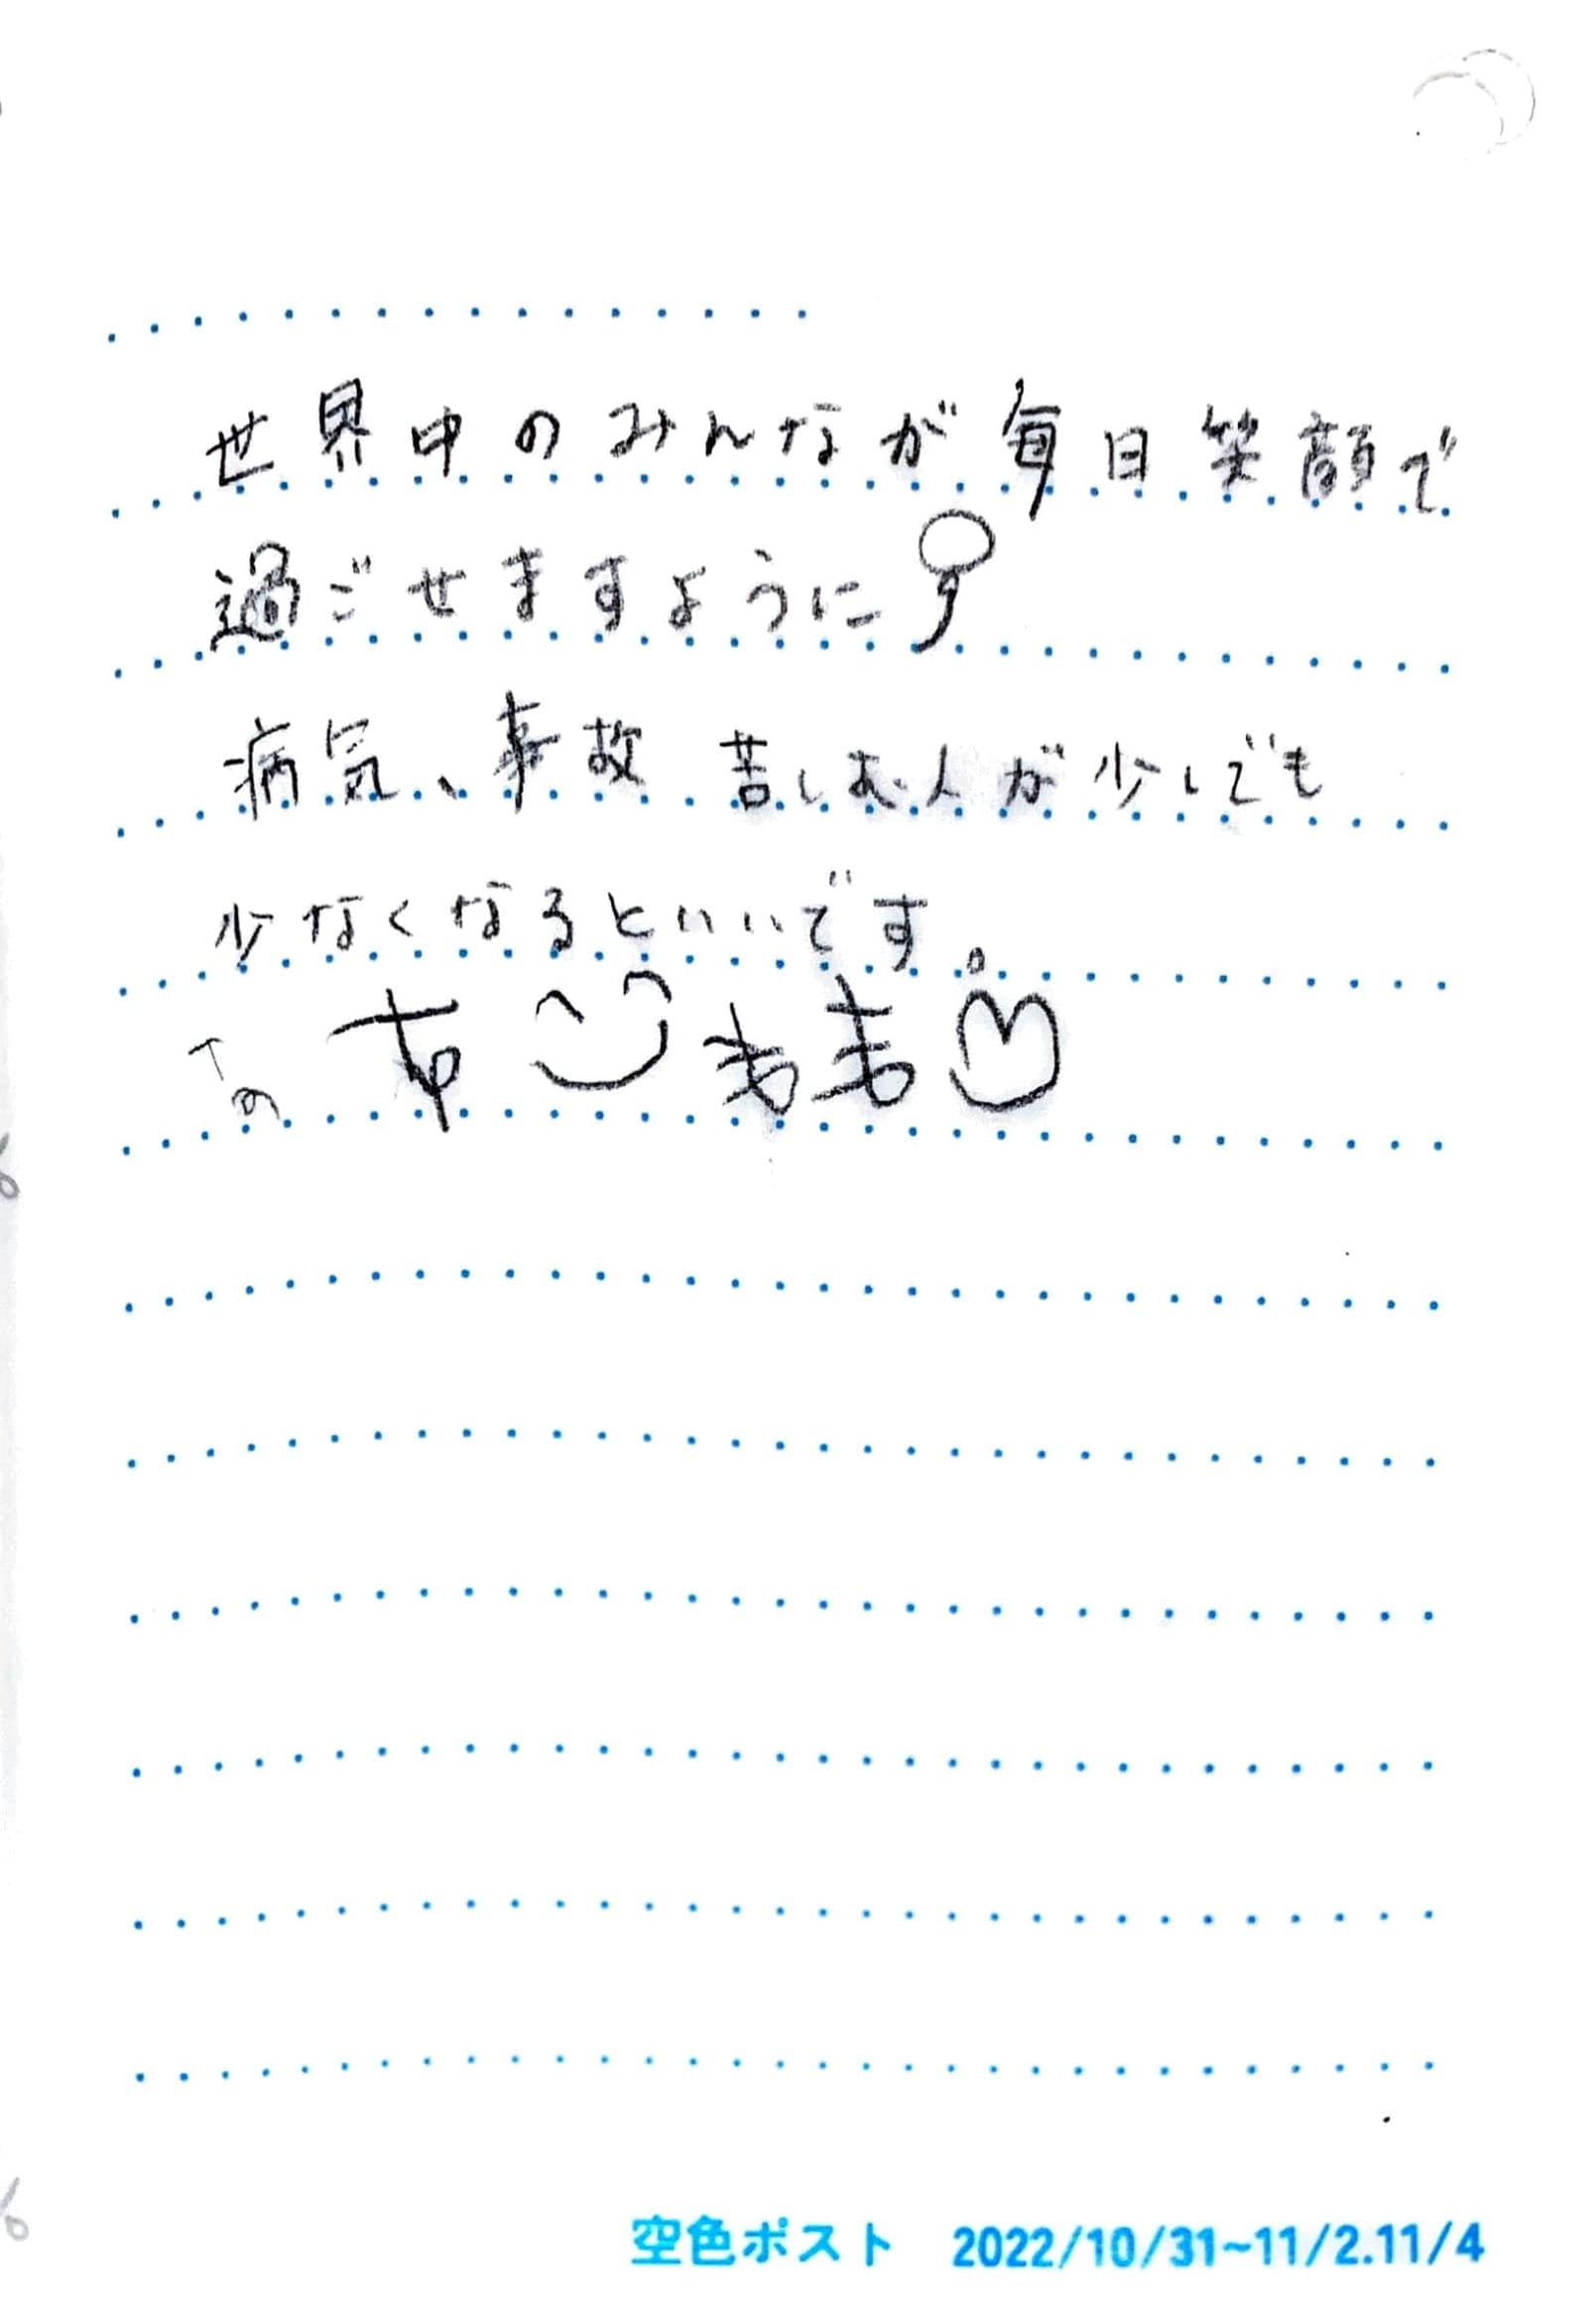 世界中のみんなが毎日笑顔で
過ごせますように
病気、事故 苦しむ人が少しでも
少なくなるといいです。
空色ポスト 2022/10/31~11/2.11/4